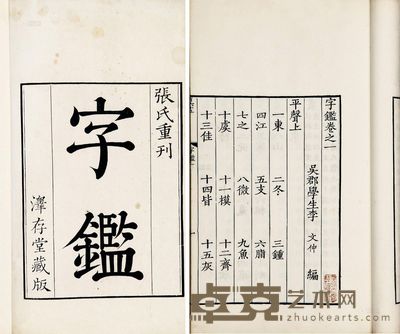 張氏重刊
字鑑
澤存堂藏版
字鑑卷之一
吳郡學生李 文仲 編
平聲上
一東 二冬 三鍾
四江 五支 六脂
七之 八微 九魚
十虞 十一模 十二齊
十三佳 十四皆 十五灰
卓克艺术网
zhuokearts.com